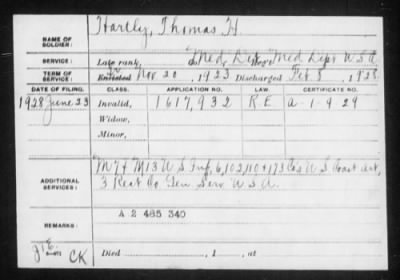 NAME OF SOLDIER: Hartly, Thomas H.
SERVICE: Late rank, Med. Det. Med Dept U.S.A.
TERM OF SERVICE: Enlisted Nov 20, 1923 Discharged Feb 8, 1928
DATE OF FILING. CLASS. APPLICATION NO. LAW. CERTIFICATE NO.
1928 June 23 Invalid, 1617,932 R E a-1-9-29
Widow,
Minor,
ADDITIONAL SERVICES: "M 7 & M 13 U S Inf, 6, 102, 110 & 173 Co's U S Coast Art,
3 Rec't Co. Gen Serv U.S.A.
A 2 485 340
REMARKS:
CK Died , 1 , at